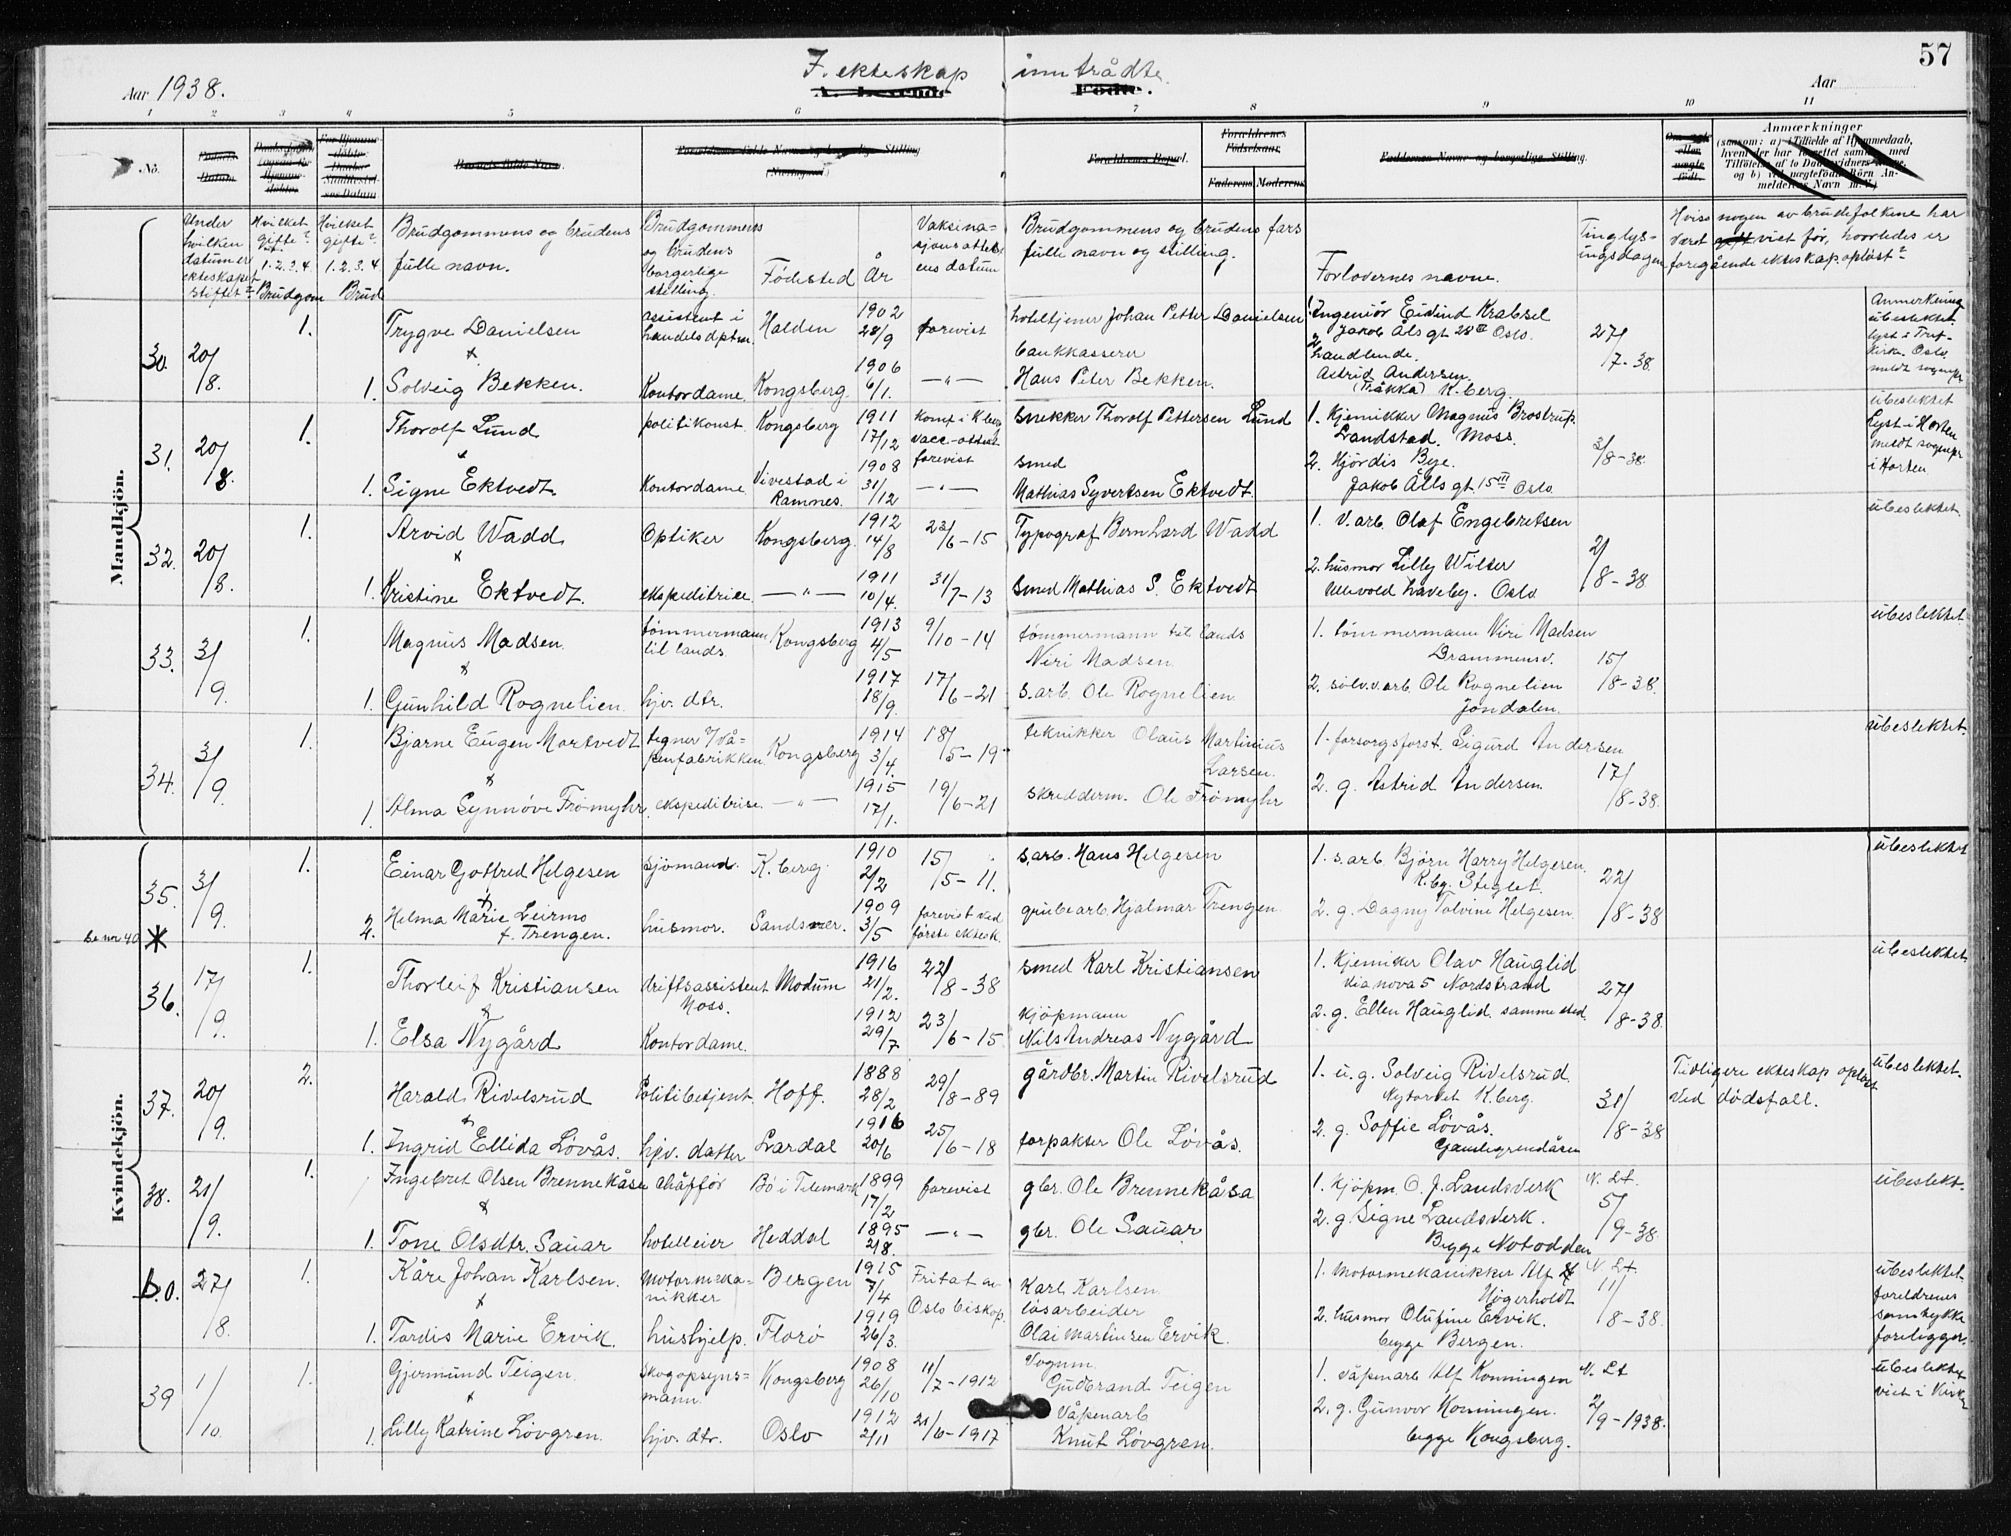 57
Aar 1938.
I. ekteskap inntrådte.
Aar
1 2 3 4 5 6 7 8 9 10 11
No.
Anmærkninger
Under hvilken datum er ekteskapet stiftet?
Hvilket gifte? 1.2.3.4 Brudgom
Hvilket gifte? 1.2.3.4 Brud
Brudgommens og brudens fulle navn.
Brudgommens og brudens borgerlige stilling.
Födested
År
Vaksinasjonsattestens datum
Brudgommens og brudens fars fulle navn og stilling.
Forlovernes navne.
Tinglysingsdagen
Hviss nogen av brudefolkene har været viet för, hvorledes er foregående ekteskap oplöst?
Mandkjön.
30. 20/8. 1. Trygve Danielsen assistent i handelsdptm. Halden 1902 28/9 forevist hoteltjener Johan Petter Danielsen 1. Ingeniör Eidind Krabsel Jakob Åls gt 28 III Oslo. 27/7-38. Anmerkning ubeslektet. lyst i Oslo
1. Solveig Bekken. Kontordame. Kongsberg. 1906 6/1. —"— bankkasserer Hans Peter Bekken. 2. Astrid Andersen. K.berg.
31. 20/8. 1. Thorolf Lund politikonst. Kongsberg 1911 17/12 forevist snekker Thorolf Pettersen Lund 1. Kjemikker Magnus Brostrup Landstad. Moss. 3/8-38. ubeslektet lyst i Horten meldt sognepr i Horten.
1. Signe Ektvedt. Kontordame Vivestad i Ramnes. 1908 31/12 —"— smed Mathias Syvertsen Ektvedt 2. Hjördis Bye. Jakob Ålls gt. 15 III Oslo
32. 20/8. 1. Arvid Wadd Optiker Kongsberg. 1912 14/8 23/6-15 Typograf Bernhard Wadd 1. V. arb. Olaf Engebretsen 2/8-38 ubeslektet.
1. Kristine Ektvedt. ekspeditrise. —"— 1911 10/4. 31/7-13 smed Mathias S. Ektvedt 2. husmor Lilly Wilter Ullevold haveby. Oslo
33. 3/9. 1. Magnus Madsen. tömmermann til lands. Kongsberg 1913 4/5 9/10-14 tömmermann til lands Niri Madsen. 1. tömmermann Niri Madsen Drammensv. 15/8-38. ubeslektet
1. Gunhild Rognelien. hjv. dtr. 1917 18/9. 17/6-21 s.arb. Ole Rognelien 2. sölvv.arb. Ole Rognelien Jondalen.
34. 3/9. 1. Bjarne Eugen Mortvedt tegner v/Våpenfabrikken Kongsberg 1914 3/4. 18/5-19 teknikker Olaus Martinius Larsen. 1. forsorgsforst. Sigurd Andersen 17/8-38. ubeslektet.
1. Alma Synnöve Frömyhr. ekspeditrise. —"— 1915 17/1. 19/6-21 skredderm. Ole Frömyhr 2. g. Astrid Andersen.
Kvindekjön.
35. 3/9. 1. Einar Gottred Helgesen sjömand. K.berg. 1910 2/2 15/5-11. s.arb. Hans Helgesen 1. s.arb. Björn Harry Helgesen. K.bg. Stiglet. 22/8-38 ubeslektet
se nr 40 * 2. Helma Marie Leirmo f. Trengen. husmor. Sandsvær. 1909 3/5 forevist ved förste ektesk. grubearb. Hjalmar Trengen. 2. g. Dagny Tolvine Helgesen.
36. 17/9. 1. Thorleif Kristiansen driftsassistent Moss. Modum 1916 21/2. 22/8-38 smed Karl Kristiansen 1. Kjemiker Olav Hauglid Via nova 5 Nordstrand 27/8-38. ubeslektet.
1. Elsa Nygård Kontordame. 1912 29/7 23/6-15 kjöpmann Nils Andreas Nygård 2. g. Ellen Hauglid. samme sted.
37. 20/9. 2. Harald Rivelsrud Politibetjent. Hoff. 1888 28/2 29/8-89 gårdbr. Martin Rivelsrud 1. u.g. Solveig Rivelsrud. Nytorvet K.berg. 31/8-38 Tidligere ekteskap oplöst ved dödsfall. ubeslektet.
1. Ingrid Ellida Lövås. hjv. datter Lardal 1916 20/6 25/6-18 forpakter Ole Lövås. 2. g. Soffie Lövås. Gamlegrendåsen
38. 21/9. 1. Ingebret Olsen Brennekåsa chåfför Bö i Telemark 1899 17/2 forevist gbr. Ole Brennekåsa 1. Kjöpm. O. J. Landsverk N. Lt. 5/9-38 ubeslekt.
1. Tone Olsdtr. Sauar hotelleier Heddal 1895 2/8. —"— gbr. Ole Sauar 2. g. Signe Landsverk. Begge Notodden
b.o. 27/8. 1. Kåre Johan Karlsen. motormekanikker Bergen 1915 7/4 Fritat av Oslo biskop. Karl Karlsen. lösarbeider 1. Motormekanikker Alf Högerholdt N. Lt. 11/8-38. ubeslektet. foreldrenes samtykke foreligger.
1. Tordis Marie Ervik. hushjelp. Florö 1919 26/3. Olai Martinsen Ervik. 2. husmor Olufine Ervik. begge Bergen.
39 1/10. 1. Gjermund Teigen. Skogopsynsmann. Kongsberg 1908 26/10 11/7-1912 Vognm. Gudbrand Teigen 1. våpenarb Alf Konningen N. Lt 2/9-1938. ubeslektet viet i Kirke
1. Lilly Katrine Lövgren. hjv. dtr. Oslo 1912 2/11 21/6-1917 Våpenarb Knut Lövgren. 2. g. Gunvor Konningen. begge Kongsberg.